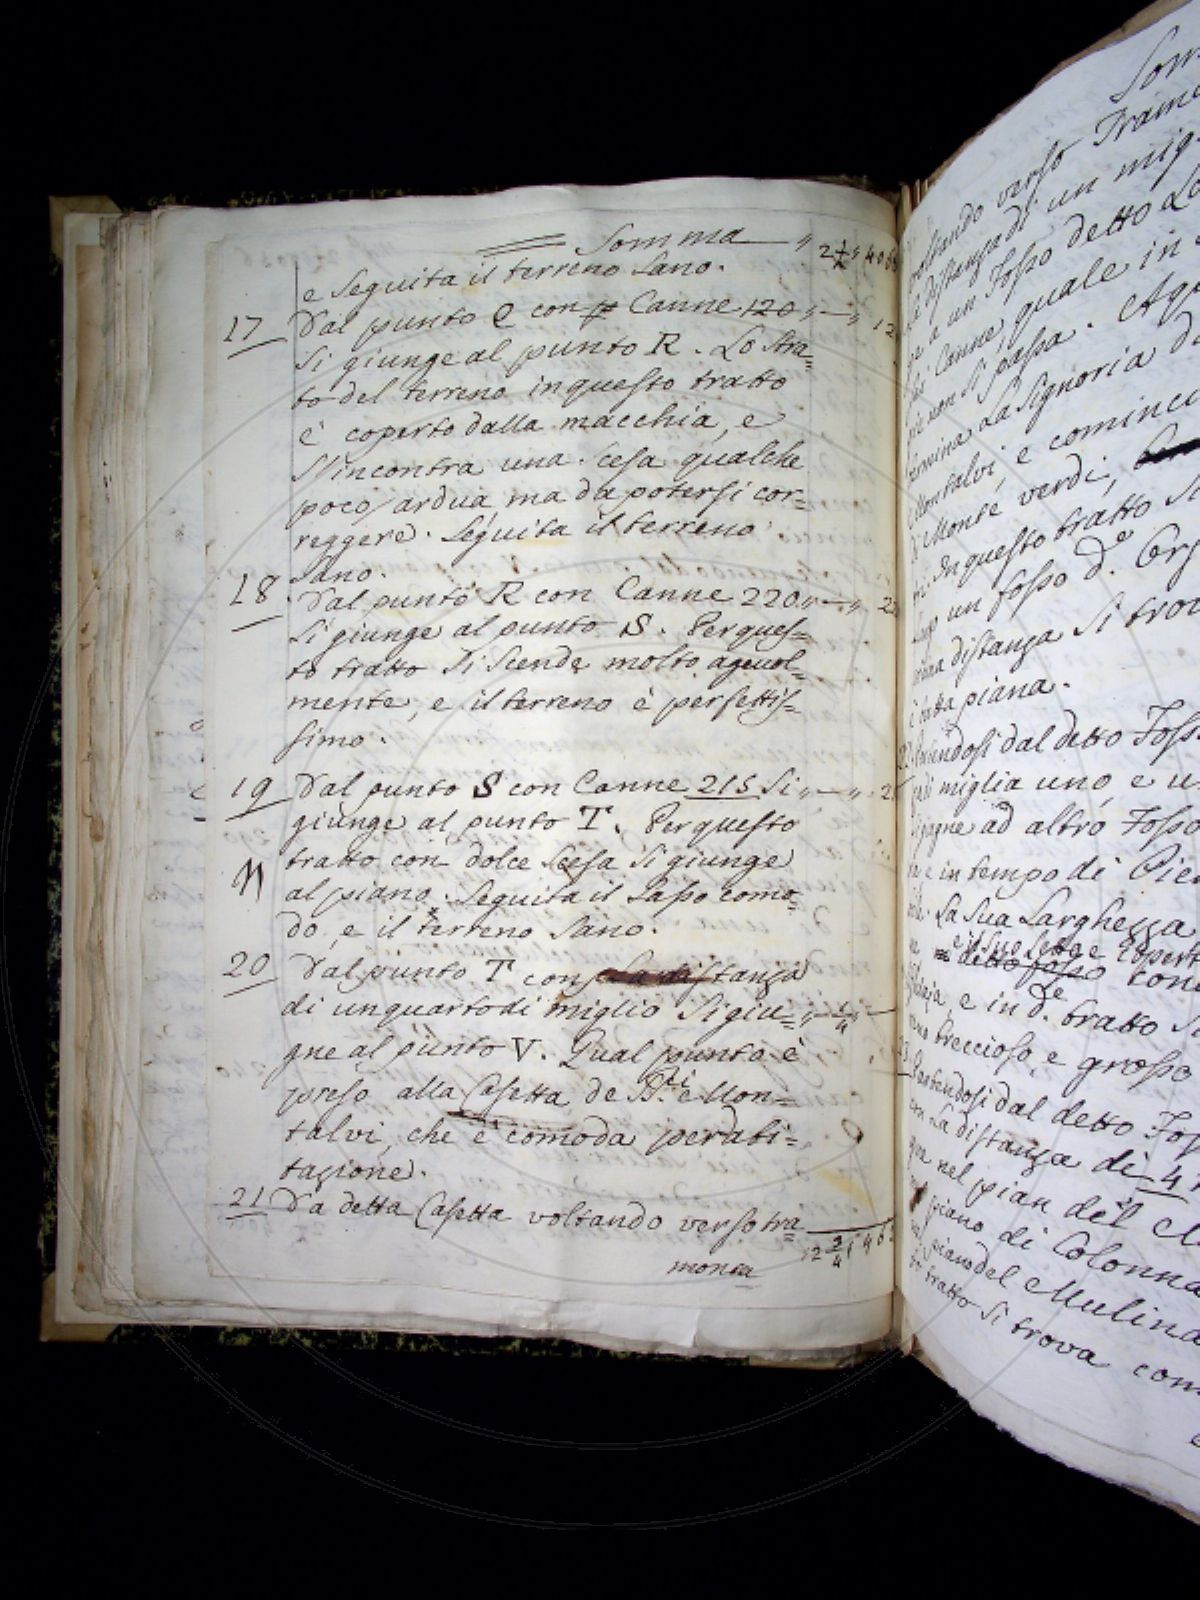 Somma — " 2 1/2 " 406
e Seguita il terreno Sano.
17 Dal punto Q con Canne 120 " — " 12
Si giunge al punto R. Lo Stra=
to del terreno in questo tratto
è coperto dalla macchia, e
S'incontra una Scesa qualche
poco ardua, ma da potersi cor=
reggere. Seguita il terreno
Sano.
18 Dal punto R con Canne 220 " — " 22
Si giunge al punto S. Per ques=
to tratto Si Scende molto agevol=
mente, e il terreno è perfettis=
simo.
19 Dal punto S con Canne 215 Si " — " 21
giunge al punto T. Per questo
tratto con dolce Scesa Si giunge
al piano. Seguita il Sasso como=
do, e il terreno Sano.
20 Dal punto T con la distanza
di un quarto di miglio Si giu= " 1/4 " —
gne al punto V. Qual punto è
preso alla Casetta de SS.ri Mon=
talvi, che è comoda per abi=
tazione.
21 Da detta Casetta voltando verso tra=
montana
12 3/4
voltando verso Tramo
la distanza di un mig
ge a un Fosso detto Lo
Canne, quale in
non Si passa. Aqu
termina La Signoria d
Montalvi, e cominci
Monte verdi,
In questo tratto
un fosso d.o
distanza Si trov
è tutta piana.
22 Partendosi dal detto Foss
miglia uno, e u
giugne ad altro Fosso
e in tempo di Pien
La Sua Larghezza
e il Suo Letto è copert
detto fosso
ghiaja, e in d.to tratto
breccioso, e grosso
23 Partendosi dal detto Fos
con La distanza di 4
nel pian del
piano di Colonna
piano del Mulina
tratto Si trova com